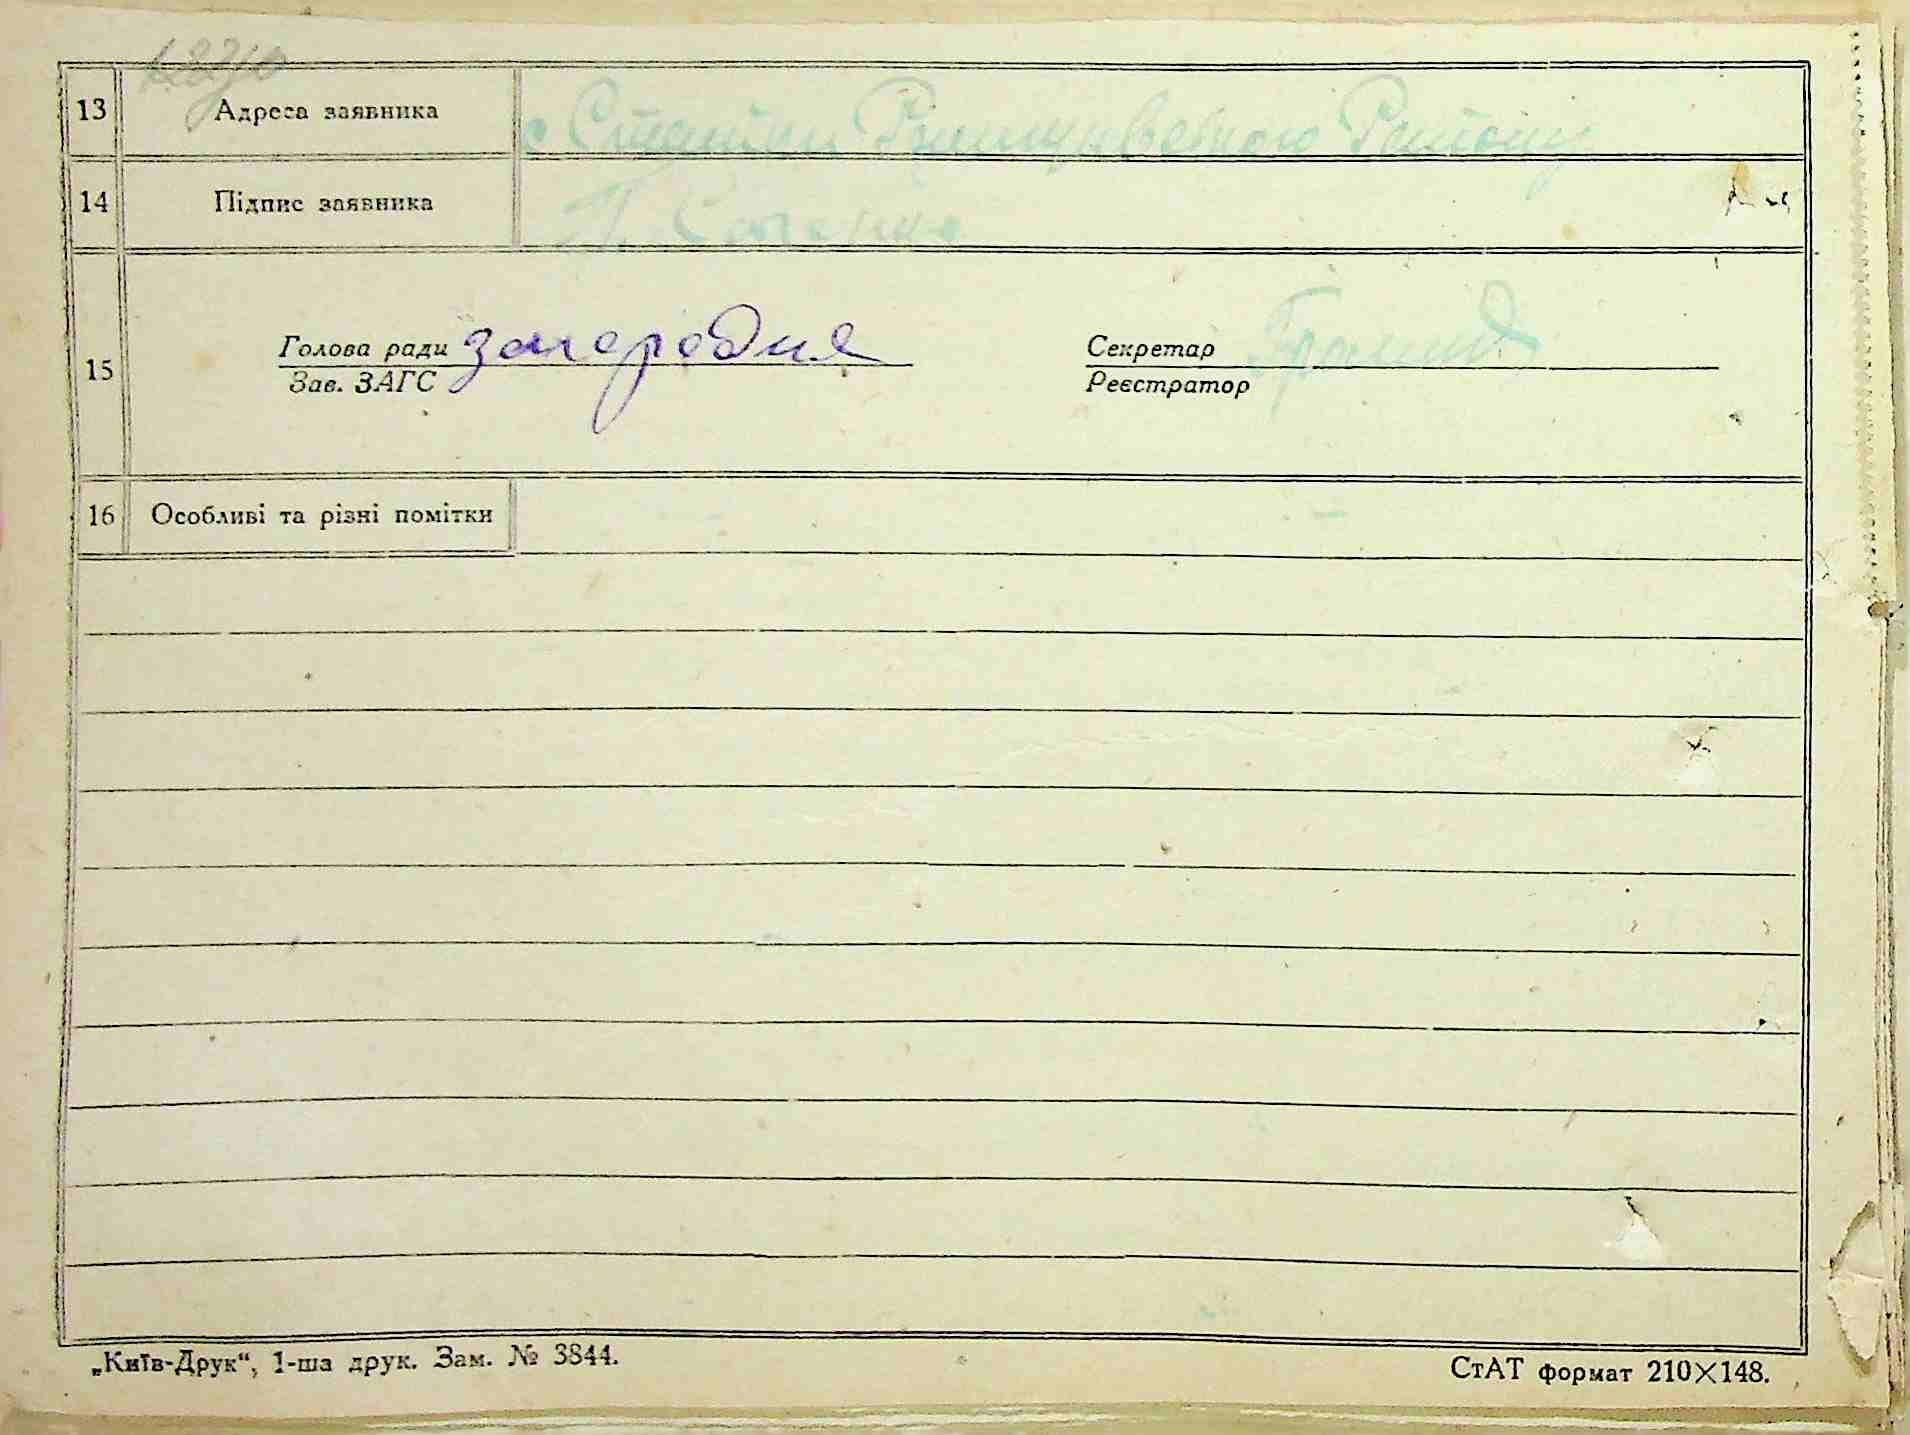 13 Адреса заявника с Статки Ракитнянського Району
14 Підпис заявника П.
15 Голова ради Загородня Секретар
Зав. ЗАГС Реєстратор
16 Особливі та різні помітки
„Київ-Друк“, 1-ша друк. Зам. № 3844. СтАТ формат 210×148.